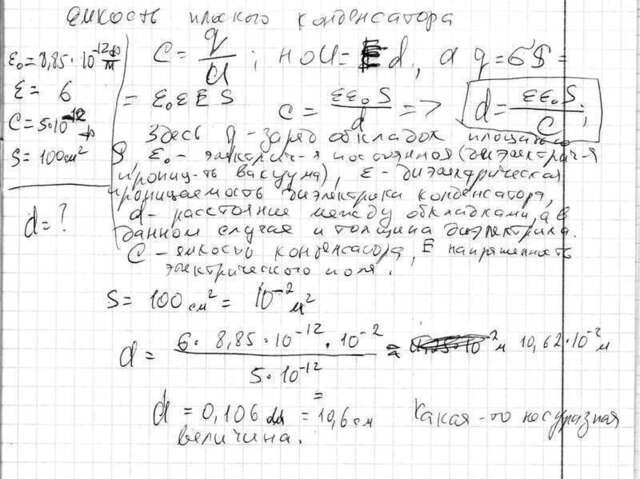 емкость плоского конденсатора
ε₀=8,85·10⁻¹² ф/м
ε= 6
C=5·10⁻¹² ф
S=100см²
d=?
C = q/U; но U=Ed, а q=σS=
= ε₀εES C = εε₀S/d => d= εε₀S/C;
Здесь q-заряд обкладок площадью
S, ε₀- электрич-я постоянная (диэлектрич-я
прониц-ть вакуума), ε-диэлектрическая
проницаемость диэлектрика конденсатора,
d- расстояние между обкладками, а в
данном случае и толщина диэлектрика.
C-емкость конденсатора, E напряженность
электрического поля.
S= 100см² = 10⁻² м²
d = 6·8,85·10⁻¹²·10⁻² / 5·10⁻¹² = 10,62·10⁻² м
d = 0,106 м = 10,6 см Какая-то несуразная
величина.